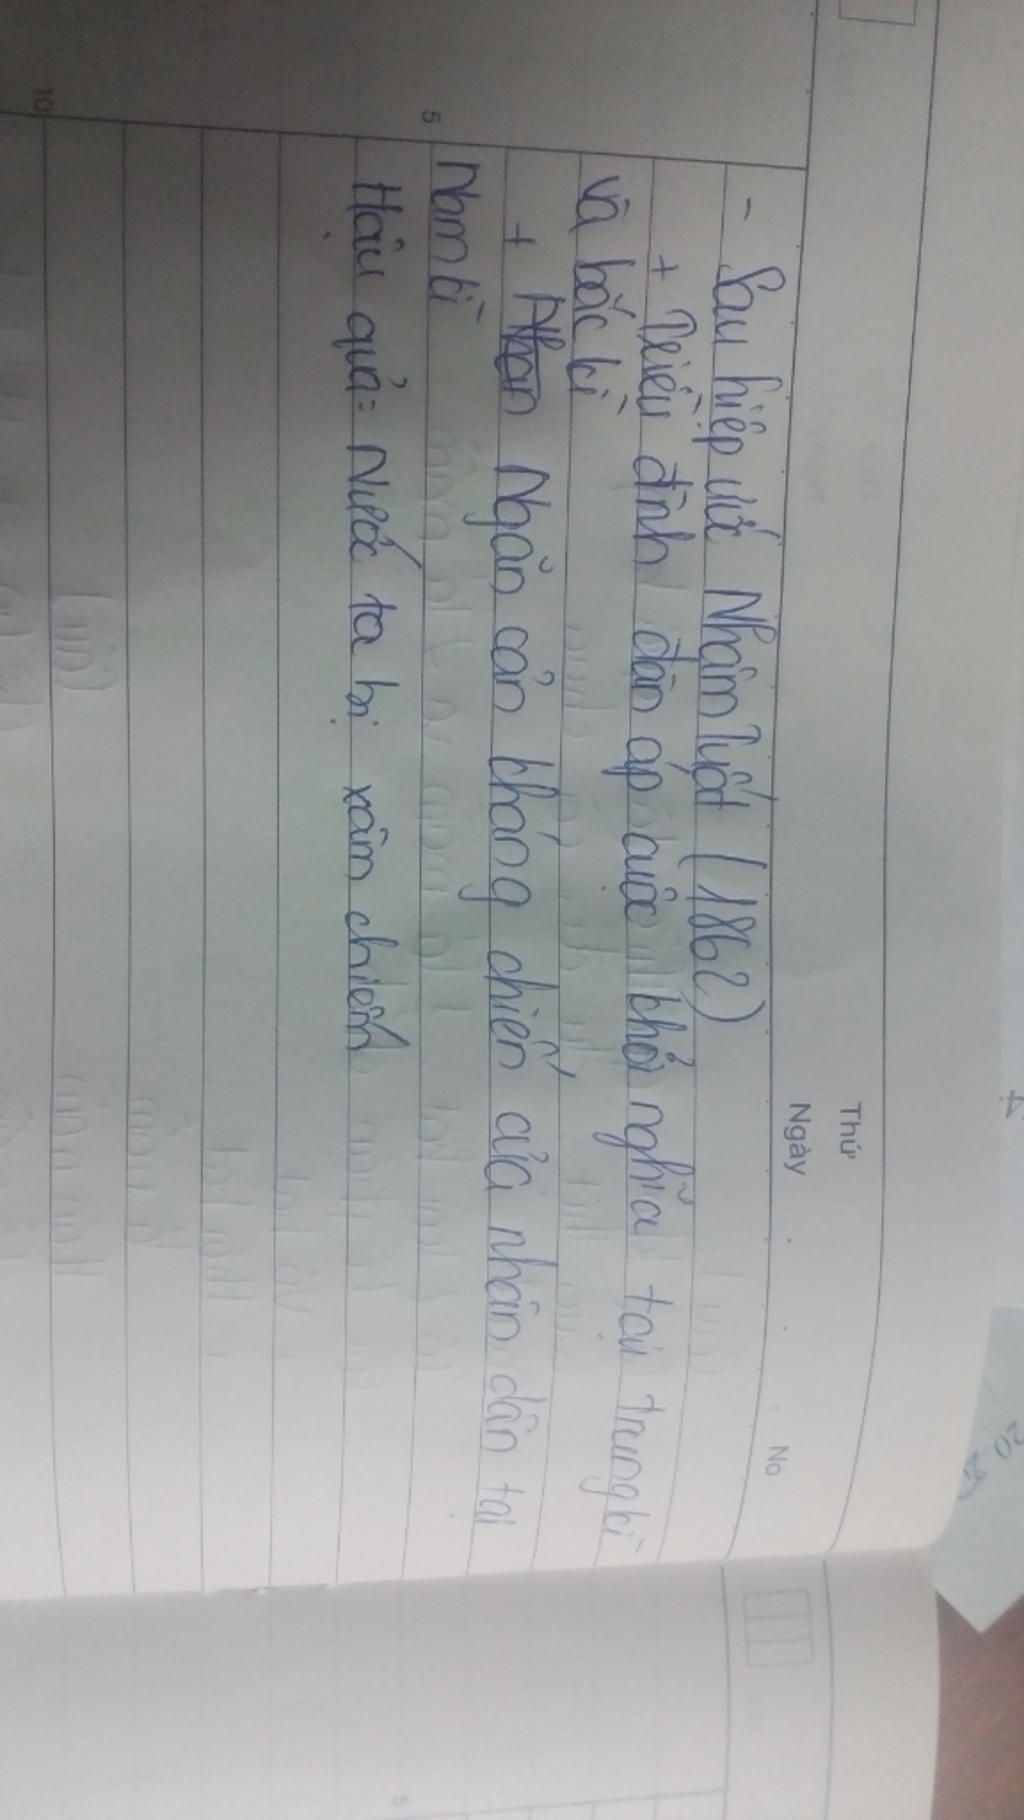 Thứ
Ngày
No
- Sau hiệp ước Nhâm Tuất (1862)
+ Triều đình đàn áp cuộc khởi nghĩa tại trung kì
và bắc kì
+ Ngăn cản kháng chiến của nhân dân tại
5
Nam kì
Hậu quả: Nước ta bị xâm chiếm
10
5